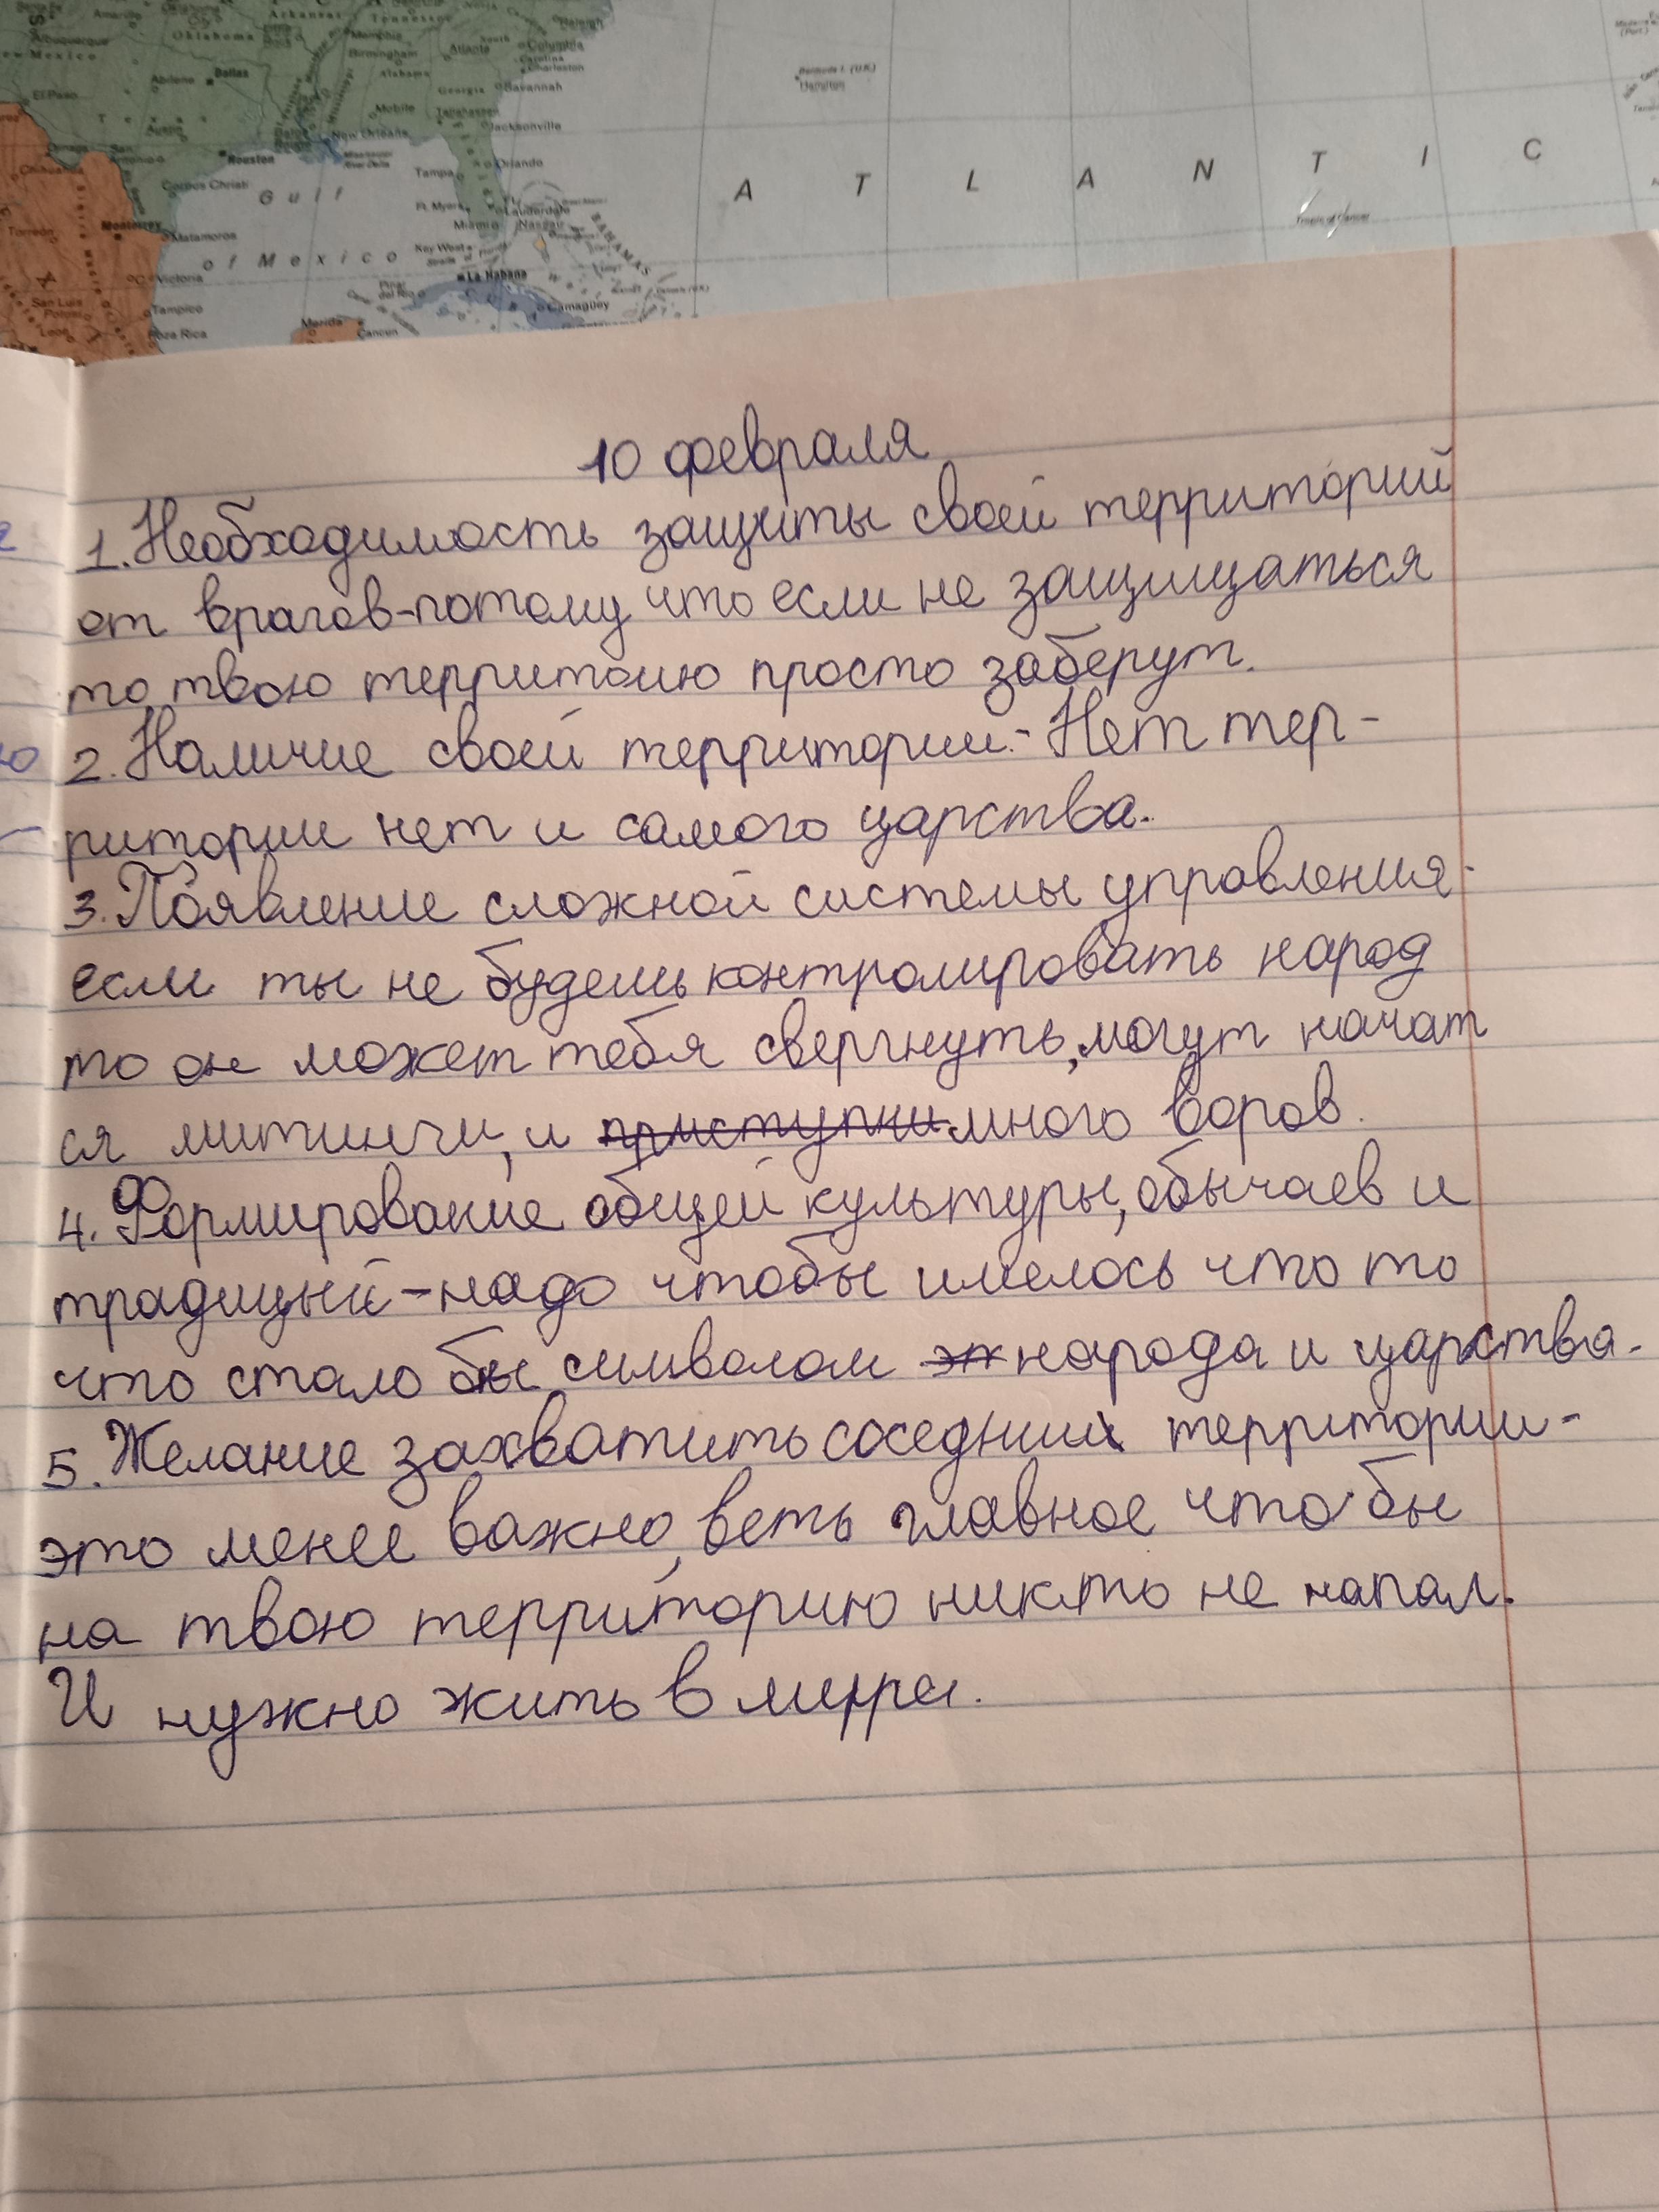 New Mexico
Albuquerque
Amarillo
Oklahoma
Arkansas
Memphis
Tennessee
Birmingham
Atlanta
South
Columbia
Carolina
Charleston
Abilene
Dallas
Alabama
Georgia
Savannah
El Paso
Texas
Mobile
Tallahassee
Jacksonville
Austin
San
Antonio
Houston
New Orleans
Mississippi
River Delta
Tampa
Orlando
Chihuahua
Corpus Christi
Gulf
of Mexico
Ft. Myers
Lauderdale
Miami
Nassau
BAHAMAS
Torreón
Monterrey
Matamoros
Key West
La Habana
C. Victoria
San Luis
Potosí
León
Tampico
Poza Rica
Pinar
del Río
Camagüey
Mérida
Cancún
Bermuda I. (U.K.)
Hamilton
ATLANTIC
Tropic of Cancer
10 февраля
1. Необходимость защиты своей территорий
от врагов-потому что если не защищаться
то твою территоию просто заберут.
2. Наличие своей территории.- Нет тер-
ритории нет и самого царства.
3. Появление сложной системы управления-
если ты не будешь контролировать народ
то он может тебя свергнуть, могут начат
ся митинги, и приступки много воров.
4. Формирование общей культуры, обычаев и
традиций-надо чтобы имелось что то
что стало бы символом эт народа и царства.
5. Желание захватить соседних территории-
это менее важно, веть главное что бы
на твою территорию никто не напал.
И нужно жить в мире.